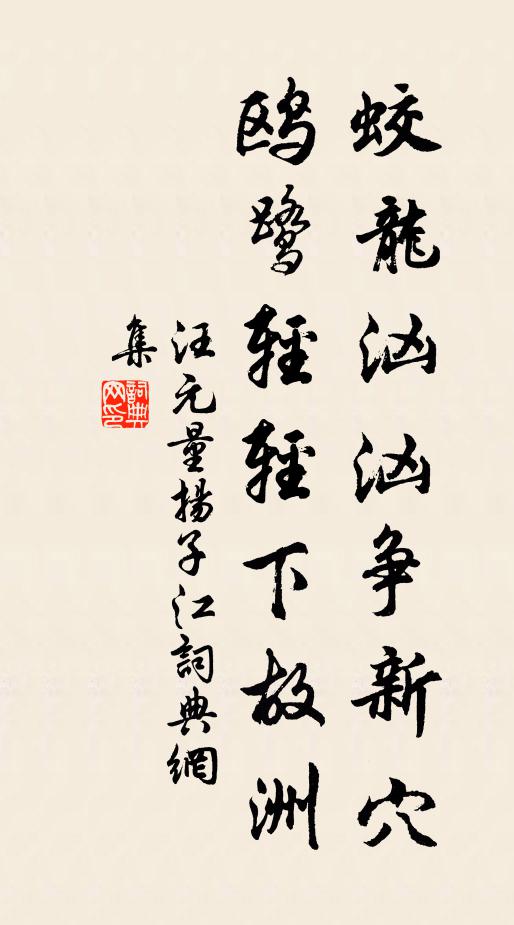 蛟龍汹汹争新穴
鸥鹭輕輕下故洲
汪元量揚子江詞典網
集
詞典
网印